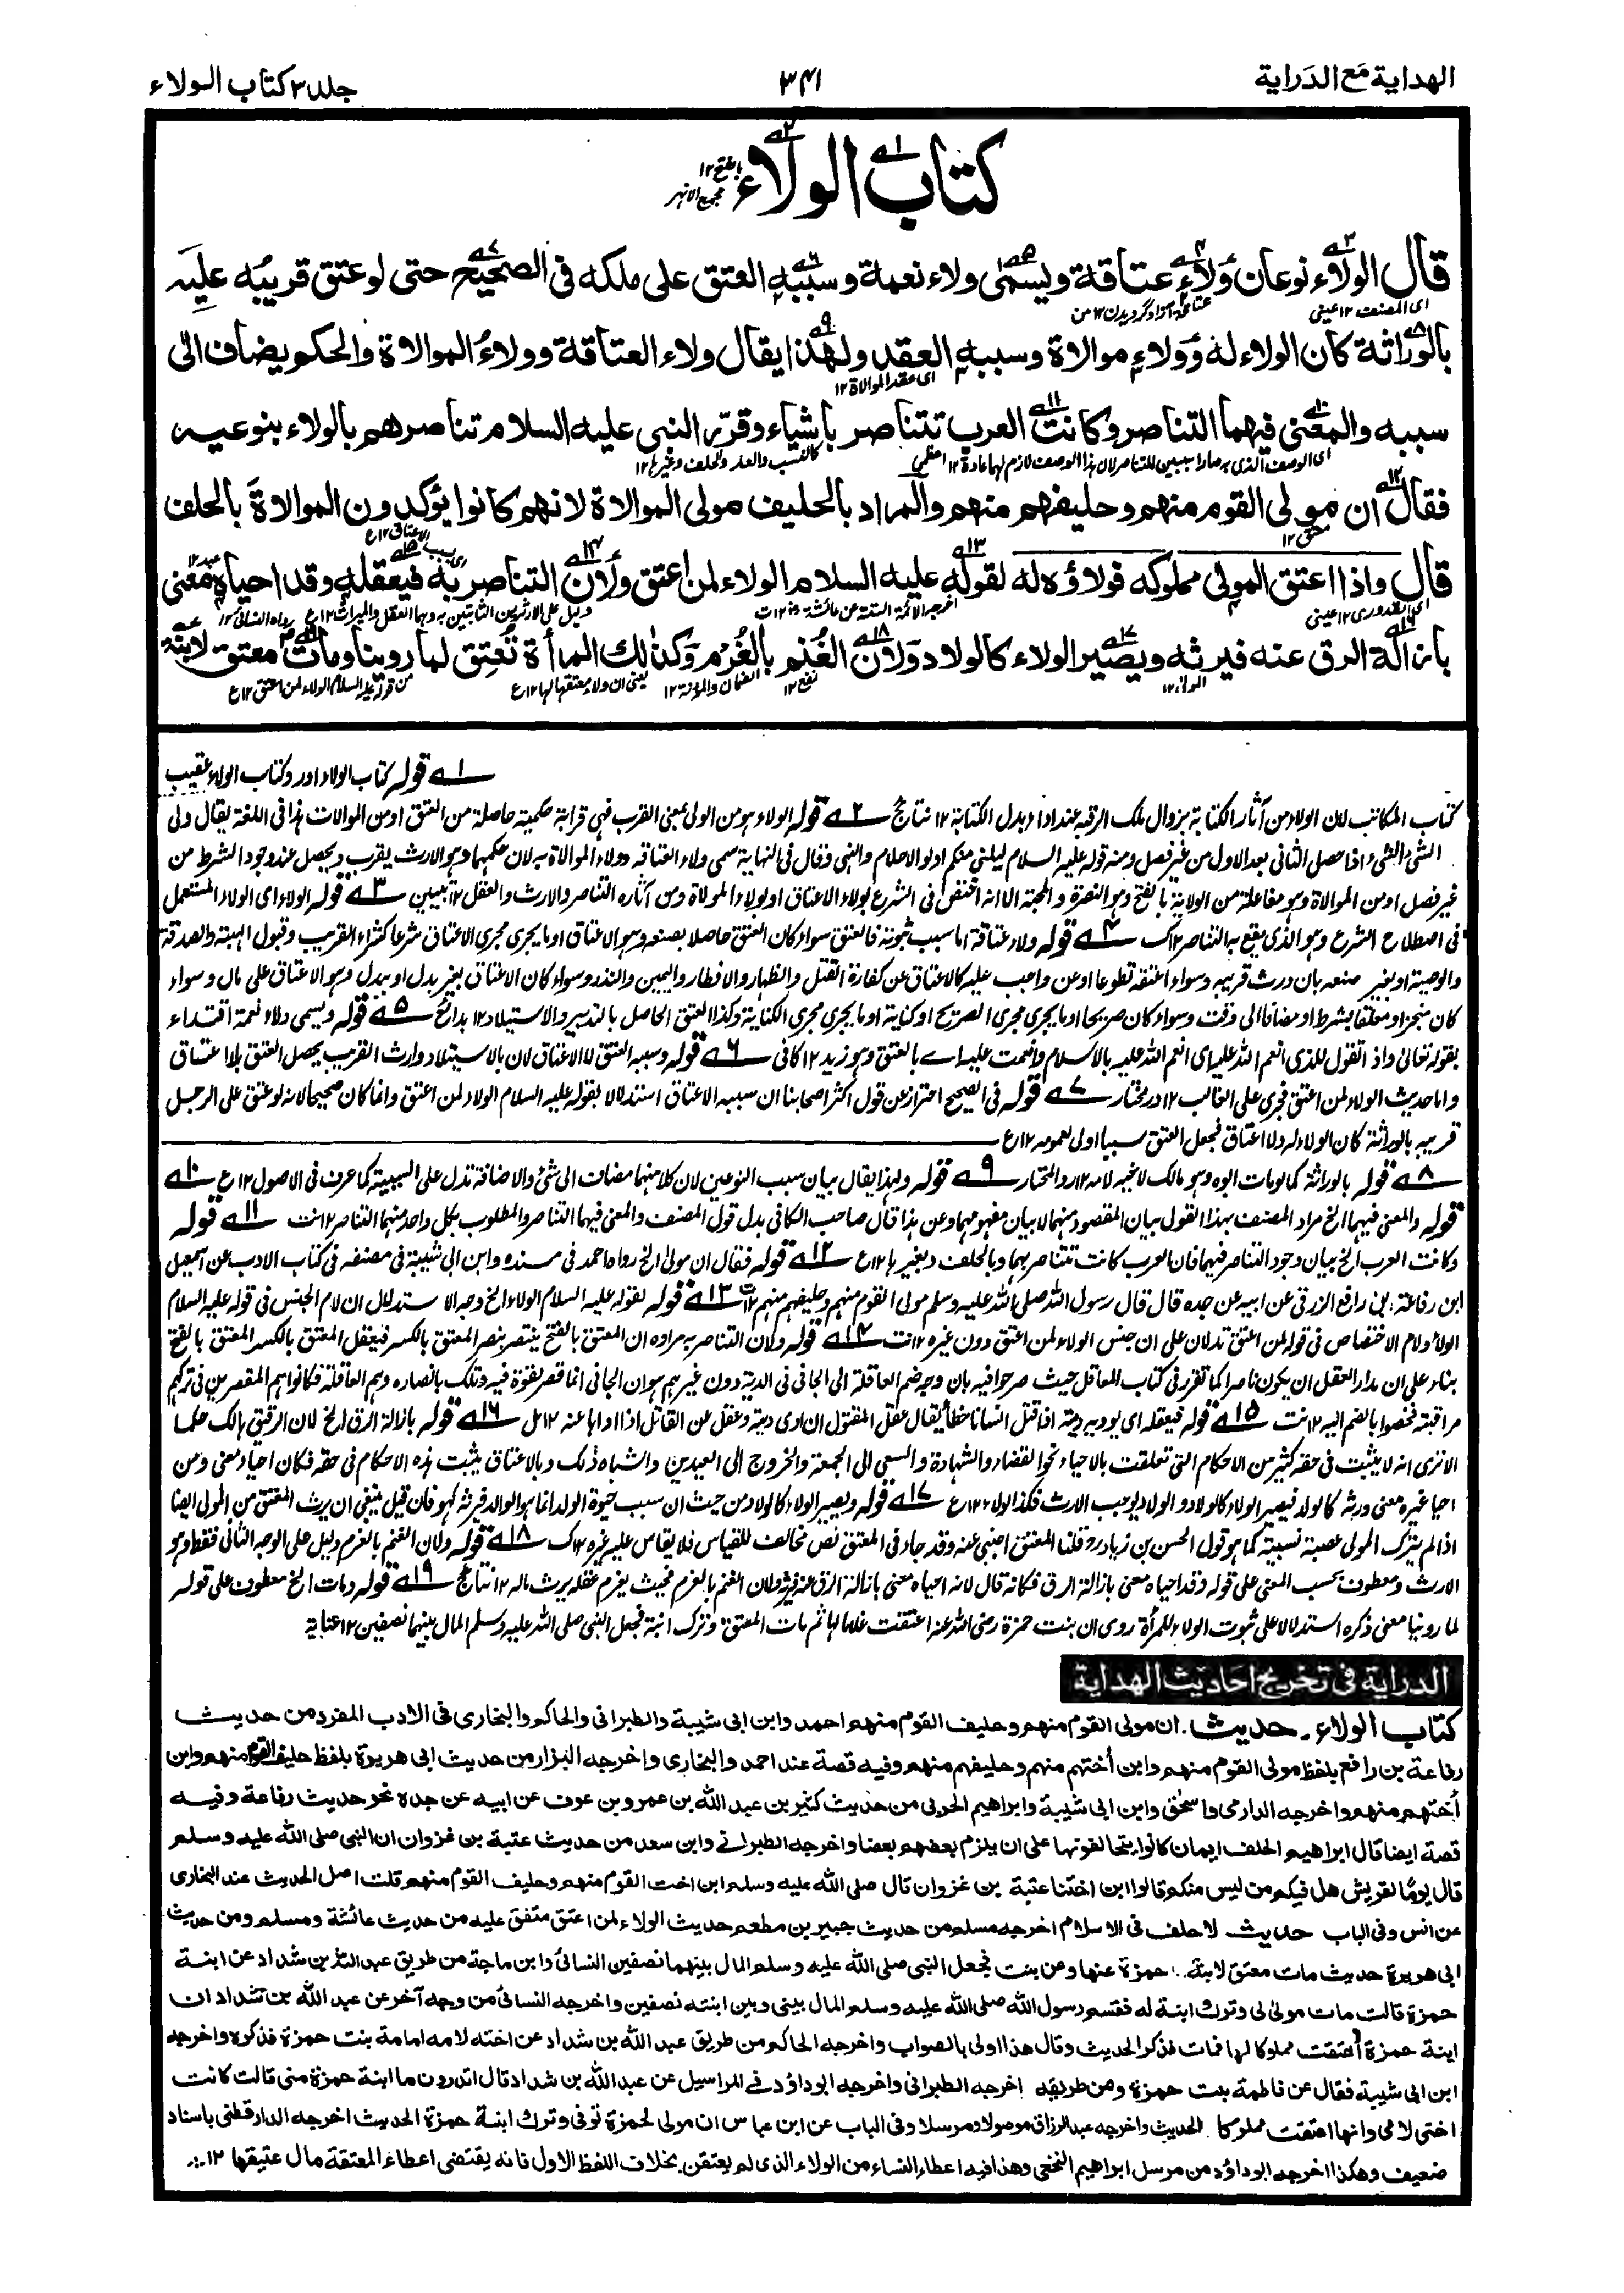 الهداية مع الدراية
٣٤١
جلد ٣ كتاب الولاء
كتاب الولاء
بالفتح ١٢ مجمع الانهر
قال الولاء نوعان ولاء عتاقة ويسمى ولاء نعمة وسببه العتق على ملكه في الصحيح حتى لو عتق قريبه عليه
اى المصنف ١٢ عينى
بالوراثة كان الولاء له وولاء موالاة وسببه العقد ولهذا يقال ولاء العتاقة وولاء الموالاة والحكم يضاف الى
اى عقد الموالاة ١٢
سببه والمعنى فيهما التناصر وكانت العرب تتناصر باشياء وقرر النبى عليه السلام تناصرهم بالولاء بنوعيه
فقال ان مولى القوم منهم وحليفهم منهم والمراد بالحليف مولى الموالاة لانهم كانوا يؤكدون الموالاة بالحلف
قال واذا اعتق المولى مملوكه فولاؤه له لقوله عليه السلام الولاء لمن اعتق ولان التناصر به فيعقله وقد احياه معنى
اى القدورى ١٢ عينى
بازالة الرق عنه فيرثه ويصير الولاء كالولاد ولان الغنم بالغرم وكذلك المرأة تعتق لما روينا ومات معتق لابنة
من قوله عليه السلام الولاء لمن اعتق ١٢ ع
١ قوله كتاب الولاء اورد كتاب الولاء عقيب
كتاب المكاتب لان الولاء من آثار الكتابة بزوال ملك الرقبة عند اداء بدل الكتابة ١٢ نتائج ٢ قوله الولاء هو من الولى بمعنى القرب فهى قرابة حكمية حاصلة من العتق او من الموالات هذا فى اللغة يقال ولى
الشئ الشئ اذا حصل الثانى بعد الاول من غير فصل ومنه قوله عليه السلام ليلنى منكم اولو الاحلام والنهى وقال فى النهاية سمى ولاء العتاقة وولاء الموالاة به لان حكمهما وهو الارث يقرب ويحصل عند وجود الشرط من
غير فصل او من الموالاة وهو مفاعلة من الولاية بالفتح وهو النصرة والمحبة الا انه اختص فى الشرع بولاء الاعتاق او بولاء الموالاة ومن آثاره التناصر والارث والعقل ١٢ تبيين ٣ قوله الولاء اى الولاء المستعمل
فى اصطلاح الشرع وهو الذى يقع به التناصر ١٢ ك ٤ قوله ولاء عتاقة اما سبب ثبوته فالعتق سواء كان العتق حاصلا بصنعه وهو الاعتاق او ما يجرى مجرى الاعتاق شرعا كشراء القريب وقبول الهبة والصدقة
والوصية او بغير صنعه بان ورث قريبه وسواء اعتقه تطوعا او عن واجب عليه كالاعتاق عن كفارة القتل والظهار والافطار واليمين والنذر وسواء كان الاعتاق بغير بدل او ببدل وهو الاعتاق على مال وسواء
كان منجزا او معلقا بشرط او مضافا الى وقت وسواء كان صريحا او ما يجرى مجرى الصريح او كناية او ما يجرى مجرى الكناية وكذا العتق الحاصل بالتدبير والاستيلاد ١٢ بدائع ٥ قوله ويسمى ولاء نعمة اقتداء
بقوله تعالى واذ تقول للذى انعم الله عليه اى انعم الله عليه بالاسلام وانعمت عليه اے بالعتق وهو زيد ١٢ كافى ٦ قوله وسببه العتق لا الاعتاق لان بالاستيلاد وارث القريب يحصل العتق بلا اعتاق
واما حديث الولاء لمن اعتق فجرى على الغالب ١٢ در مختار ٧ قوله فى الصحيح احتراز عن قول اكثر اصحابنا ان سببه الاعتاق استدلالا بقوله عليه السلام الولاء لمن اعتق وانما كان صحيحا لانه لو عتق على الرجل
قريبه بالوراثة كان الولاء له ولا اعتاق فجعل العتق سببا اولى لعمومه ١٢ ع
٨ قوله بالوراثة كما لو مات ابوه وهو مالك لاخيه لامه ١٢ رد المحتار ٩ قوله ولهذا يقال بيان سبب النوعين لان كلا منهما مضاف الى شئ والاضافة تدل على السببية كما عرف فى الاصول ١٢ ع ١٠
قوله والمعنى فيهما الخ مراد المصنف بهذا القول بيان المقصود منهما لا بيان مفهومهما وعن هذا قال صاحب الكافى بدل قول المصنف والمعنى فيهما التناصر والمطلوب بكل واحد منهما التناصر ١٢ نت ١١ قوله
وكانت العرب الخ بيان وجود التناصر فيهما فان العرب كانت تتناصر بهما وبالحلف وبغيرها ١٢ ع ١٢ قوله فقال ان مولى الخ رواه احمد فى مسنده وابن ابى شيبة فى مصنفه فى كتاب الادب عن اسمعيل
ابن رفاعة بن رافع الزرقى عن ابيه عن جده قال قال رسول الله صلى الله عليه وسلم مولى القوم منهم وحليفهم منهم ١٢ ت ١٣ قوله لقوله عليه السلام الولاء الخ وجه الاستدلال ان لام الجنس فى قوله عليه السلام
الولاء ولام الاختصاص فى قوله لمن اعتق تدلان على ان جنس الولاء لمن اعتق دون غيره ١٢ نت ١٤ قوله ولان التناصر به مراده ان المعتق بالفتح ينتصر بنصر المعتق بالكسر فيعقل المعتق بالكسر المعتق بالفتح
بناء على ان مدار العقل ان يكون ناصرا كما تقرر فى كتاب المعاقل حيث صرحوا فيه بان وجه ضم العاقلة الى الجانى فى الدية دون غيرهم هو ان الجانى انما قصر لقوة فيه وتلك بانصاره وهم العاقلة فكانوا هم المقصرين فى تركهم
مراقبته فخصوا بالضم اليه ١٢ نت ١٥ قوله فيعقله اى يؤديه دية اذا قتل انسانا خطأ يقال عقل المقتول ان ادى دية وعقل عن القاتل اذا اداها عنه ١٢ مل ١٦ قوله بازالة الرق الخ لان الرقيق هالك حكما
الا ترى انه لا يثبت فى حقه كثير من الاحكام التى تعلقت بالاحياء نحو القضاء والشهادة والسعى الى الجمعة والخروج الى العيدين واشباه ذلك وبالاعتاق يثبت هذه الاحكام فى حقه فكان احياء معنى ومن
احيا غيره معنى ورثه كالوالد فيصير الولاء كالولاد والولاد يوجب الارث فكذا الولاء ١٢ ع ١٧ قوله ويصير الولاء كالولاد من حيث ان سبب حيوة الولد انما هو الوالد فيرثه كهو فان قيل ينبغى ان يرث المعتق من المولى ايضا
اذا لم يترك المولى عصبة نسبية كما هو قول الحسن بن زياد وقلنا المعتق اجنبى عنه وقد جاء فى المعتق نص مخالف للقياس فلا يقاس عليه غيره ١٢ ك ١٨ قوله ولان الغنم بالغرم دليل على الوجه الثانى فقط وهو
الارث ومعطوف بحسب المعنى على قوله وقد احياه معنى بازالة الرق فكانه قال لانه احياه معنى بازالة الرق عنه فيرثه ولان الغنم بالغرم فحيث يغرم عقله يرث ماله ١٢ نتائج ١٩ قوله ومات الخ معطوف على قوله
لما روينا معنى ذكره استدلالا على ثبوت الولاء للمرأة روى ان بنت حمزة رضى الله عنه اعتقت غلاما لها ثم مات المعتق وترك ابنة فجعل النبى صلى الله عليه وسلم المال بينهما نصفين ١٢ عناية
الدراية فى تخريج احاديث الهداية
كتاب الولاء - حديث ان مولى القوم منهم وحليف القوم منهم احمد وابن ابى شيبة والطبرانى والحاكم والبخارى فى الادب المفرد من حديث
رفاعة بن رافع بلفظ مولى القوم منهم وابن أختهم منهم وحليفهم منهم وفيه قصة عند احمد والبخارى واخرجه البزار من حديث ابى هريرة بلفظ حليف القوم منهم وابن
أختهم منهم واخرجه الدارمى واسحق وابن ابى شيبة وابراهيم الحربى من حديث كثير بن عبد الله بن عمرو بن عوف عن ابيه عن جده نحو حديث رفاعة وفيه
قصة ايضا قال ابراهيم الحلف ايمان كانوا يتحالفونها على ان يلزم بعضهم بعضا واخرجه الطبرانے وابن سعد من حديث عتبة بن غزوان ان النبى صلى الله عليه وسلم
قال يوما لقريش هل فيكم من ليس منكم قالوا ابن اختنا عتبة بن غزوان قال صلى الله عليه وسلم ابن اخت القوم منهم وحليف القوم منهم قلت اصل الحديث عند البخارى
عن انس وفى الباب حديث لا حلف فى الاسلام اخرجه مسلم من حديث جبير بن مطعم حديث الولاء لمن اعتق متفق عليه من حديث عائشة ومسلم ومن حديث
ابى هريرة حديث مات معتق لابنة حمزة عنها وعن بنت فجعل النبى صلى الله عليه وسلم المال بينهما نصفين النسائى وابن ماجة من طريق عبد الله بن شداد عن ابنة
حمزة قالت مات مولى لى وترك ابنة له فقسم رسول الله صلى الله عليه وسلم المال بينى وبين ابنته نصفين واخرجه النسائى من وجه آخر عن عبد الله بن شداد ان
ابنة حمزة اعتقت مملوكا لها فمات فذكر الحديث وقال هذا اولى بالصواب واخرجه الحاكم من طريق عبد الله بن شداد عن اخته لامه امامة بنت حمزة فذكره واخرجه
ابن ابى شيبة فقال عن فاطمة بنت حمزة ومن طريقه اخرجه الطبرانى واخرجه ابو داؤد فے المراسيل عن عبد الله بن شداد قال اتدرون ما ابنة حمزة منى قالت كانت
اختى لامى وانها اعتقت مملوكا الحديث واخرجه عبد الرزاق موصولا ومرسلا وفى الباب عن ابن عباس ان مولى لحمزة توفى وترك ابنة حمزة الحديث اخرجه الدارقطنى باسناد
ضعيف وهكذا اخرجه ابو داؤد من مرسل ابراهيم النخعى وهذا فيه اعطاء النساء من الولاء الذى لم يعتقن بخلاف اللفظ الاول فانه يقتضى اعطاء المعتقة مال عتيقها ١٢